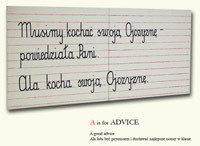 Musimy kochać swoją Ojczyznę -
powiedziała Pani.
Ala kocha swoją Ojczyznę.
A is for ADVICE
A good advice
Ala lubi być prymusem i dostawać najlepsze oceny w klasie.